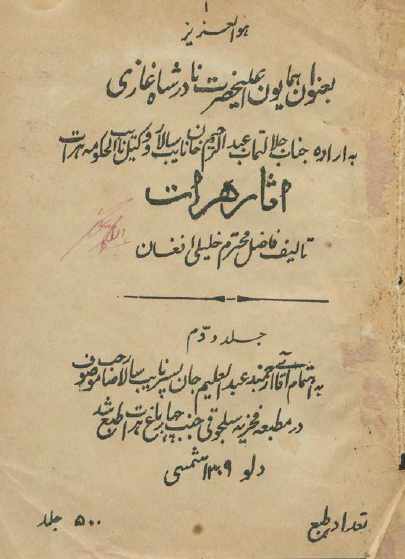 ۱
هوالعزیز
بعنوان همایون اعلیحضرت نادر شاه غازی
به اراده جناب جلالتماب عبدالرحیم خان نایب سالار و وکیل نایب الحکومه هرات
آثار هرات
تالیف فاضل محترم خلیلی افغان
جلد دوم
به اهتمام آقای ارجمند عبدالعلیم جان پسر نایب سالار صاحب موصوف
در مطبعه فخریه سلجوقی جنب چهار باغ هرات طبع شد
دلو ۱۳۰۹ شمسی
تعداد طبع
۵۰۰ جلد